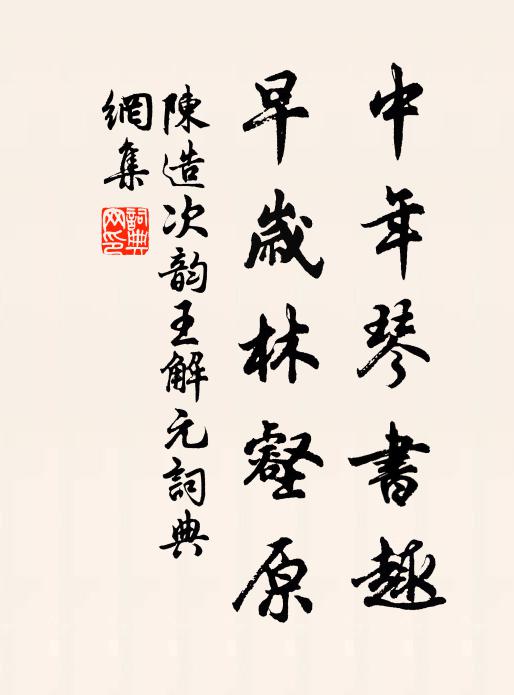 中年琴書趣
早歲林壑原
陳造次韵王解元詞典
網集
詞典網印